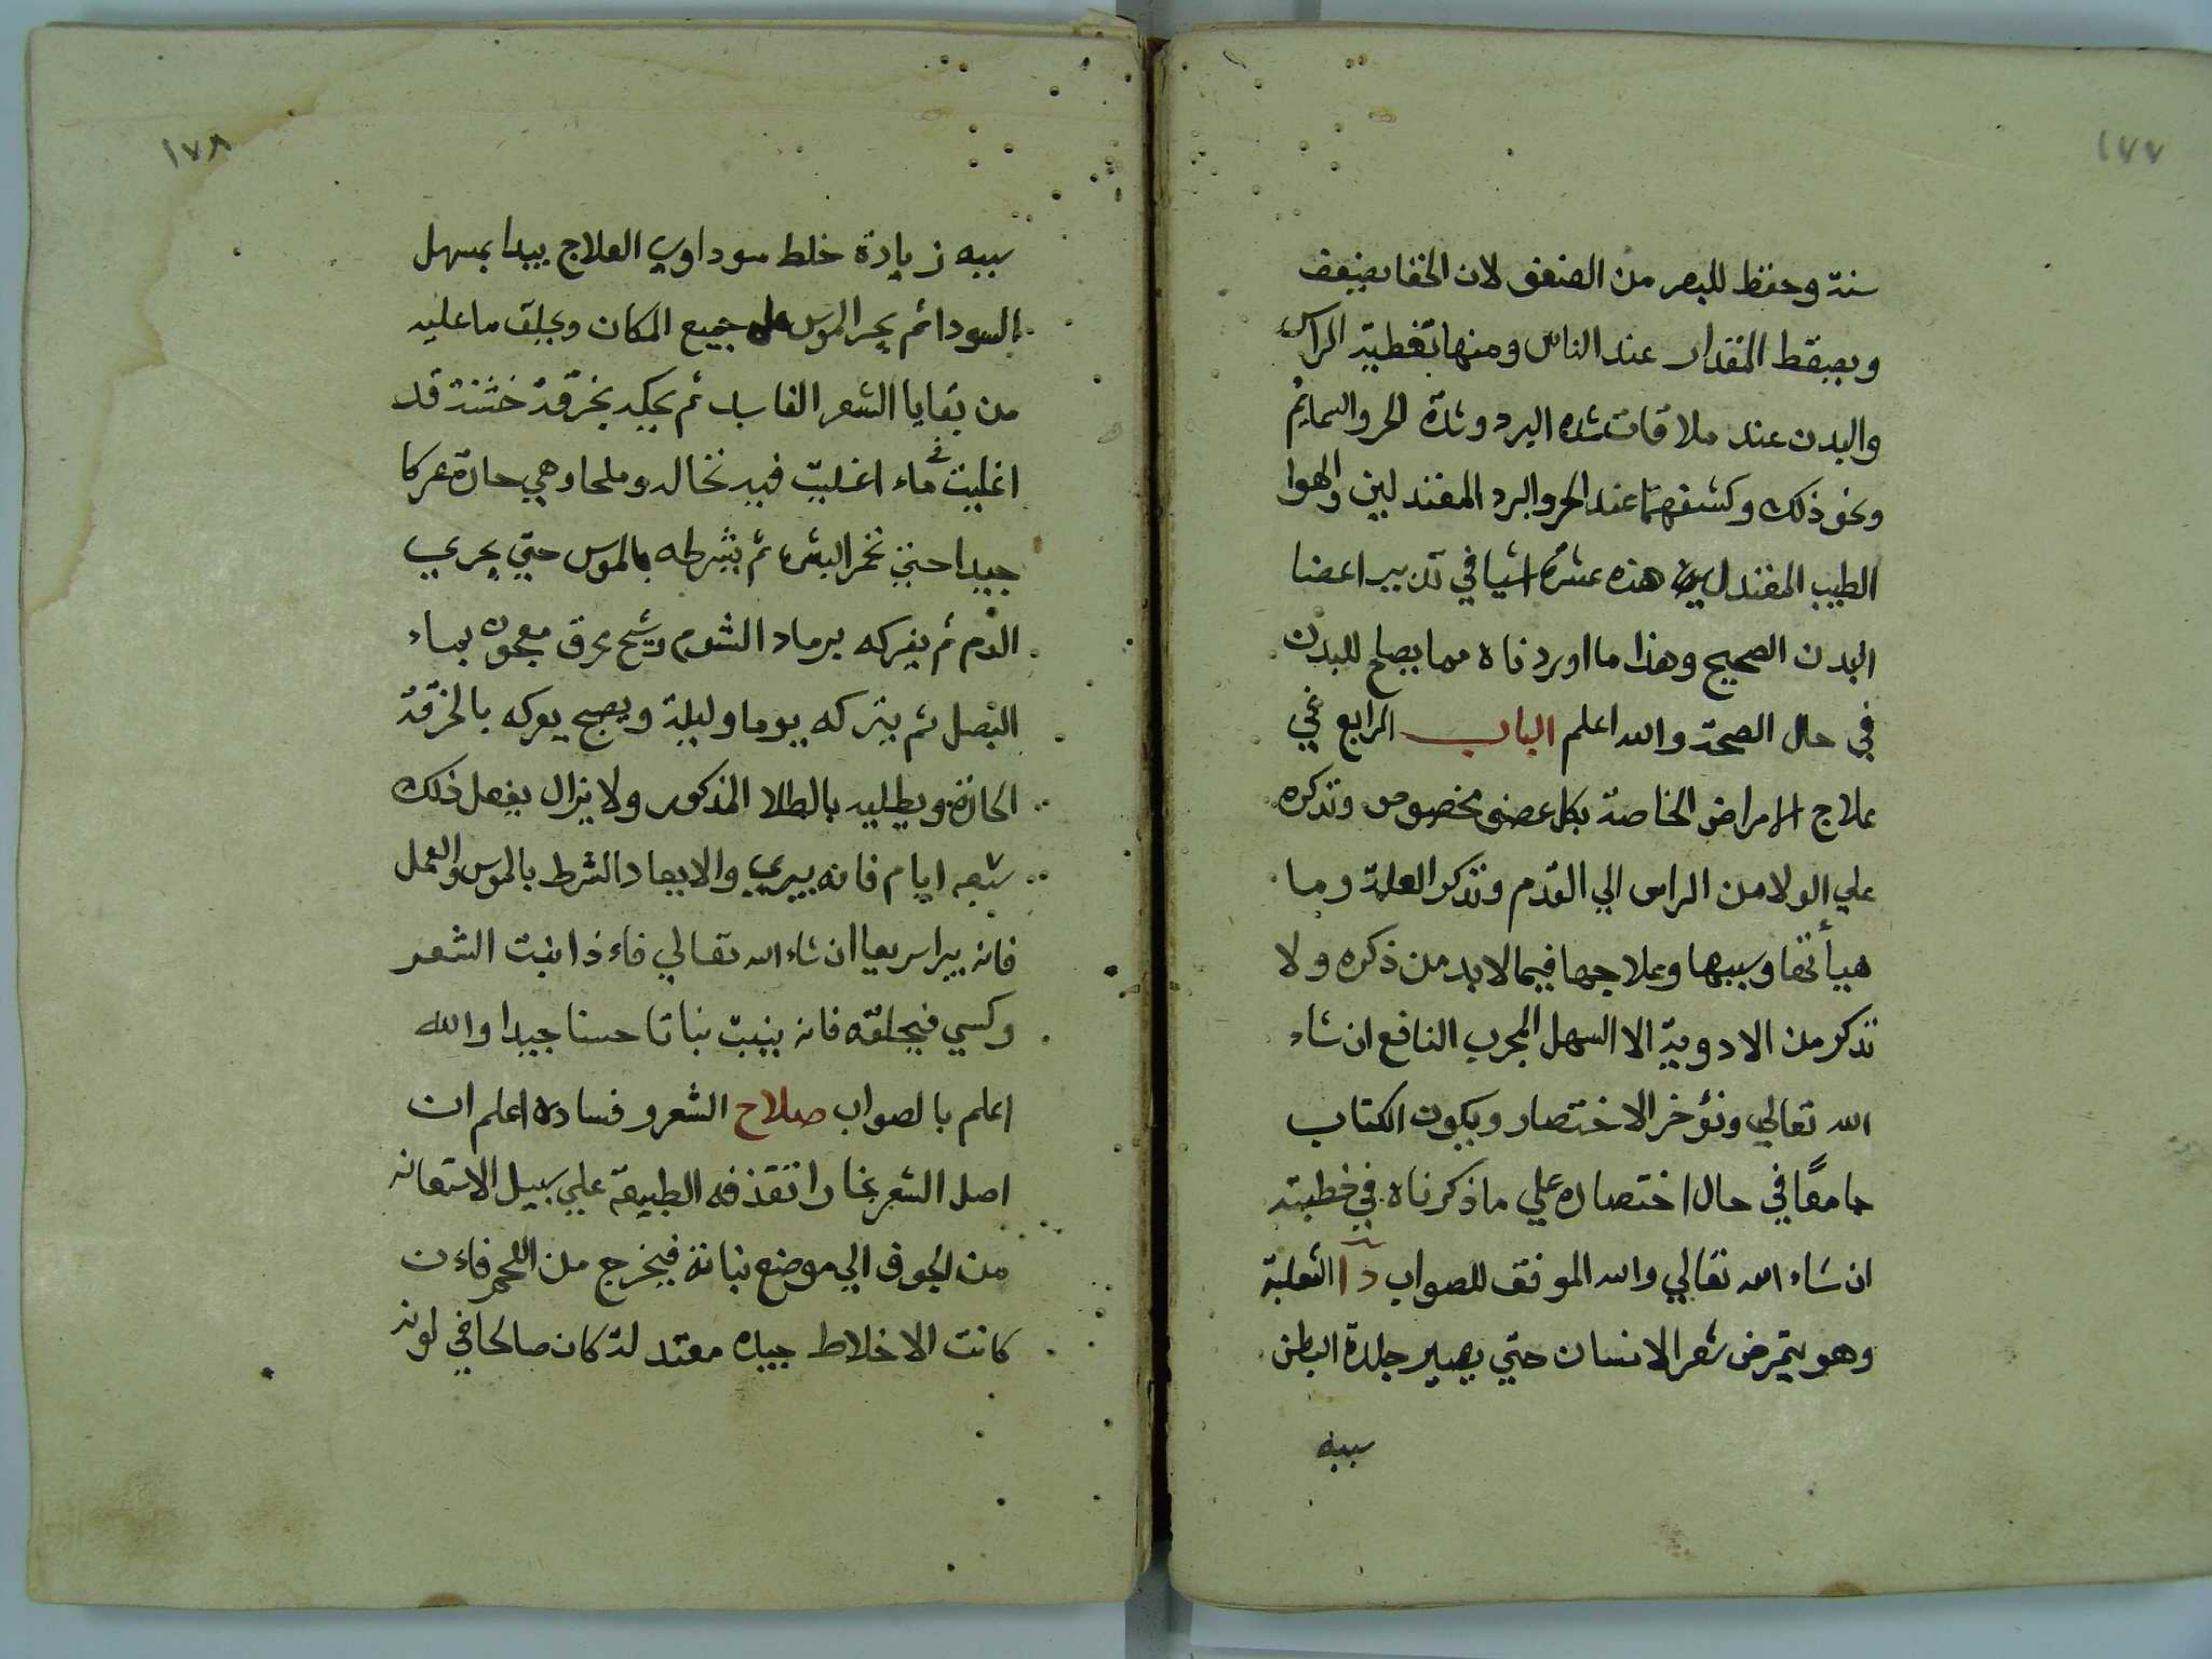 ١٧٧
سنة وحفظ للبصر من الضعف لان الحفا يضعف
ويسقط المقدار عند الناس ومنها تغطية الراس
والبدن عند ملاقات شده البرد وشدة الحر والسمايم
ونحو ذلك وكشفهما عند الحر والبرد المعتدلين والهوا
الطيب المعتدل هذه عشرة اشيا في تدبير اعضا
البدن الصحيح وهذا ما اوردناه مما يصلح للبدن
في حال الصحة والله اعلم الباب الرابع في
علاج الامراض الخاصة بكل عضو مخصوص ونذكره
علي الولا من الراس الي القدم ونذكر العلة وما
هيأتها وسببها وعلاجها فيما لابد من ذكره ولا
نذكر من الادوية الا السهل المجرب النافع ان شاء
الله تعالي ونؤخر الاختصار ويكون الكتاب
جامعًا في حال اختصاره علي ما ذكرناه في خطبته
ان شاء الله تعالي والله الموفق للصواب دا الثعلبة
وهو يتمرض شعر الانسان حتي يصير جلدة البطن
سببه
١٧٨
سببه زيادة خلط سوداوي العلاج يبدا بمسهل
السودا ثم يجر الموس علي جميع المكان ويحلق ما عليه
من بقايا الشعر الفاسد ثم يحكه بخرقة خشنة قد
اغليت في ماء اغليت فيه نخاله وملحا وهي حارة عركا
جيدا حتي تحمر البشره ثم يشرطه بالموس حتي يجري
الدم ثم يفركه برماد الثوم وشيح محرق معجون بماء
البصل ثم يتركه يوما وليلة ويصبح يعركه بالخرقة
الحارة ويطليه بالطلا المذكور ولا يزال يفعل ذلك
سبعه ايام فانه يبري والا يعاد الشرط بالموس والعمل
فانه يبرا سريعا ان شاء الله تعالي فاءذا نبت الشعر
وكسي فيحلقه فانه ينبت نباتا حسنا جيدا والله
اعلم بالصواب صلاح الشعر وفساده اعلم ان
اصل الشعر بخارا تقذفه الطبيعة علي سبيل الاستعانه
من الجوف الي موضع نباته فيخرج من اللحم فاءن
كانت الاخلاط جيده معتدلة كان صالحا في لونه